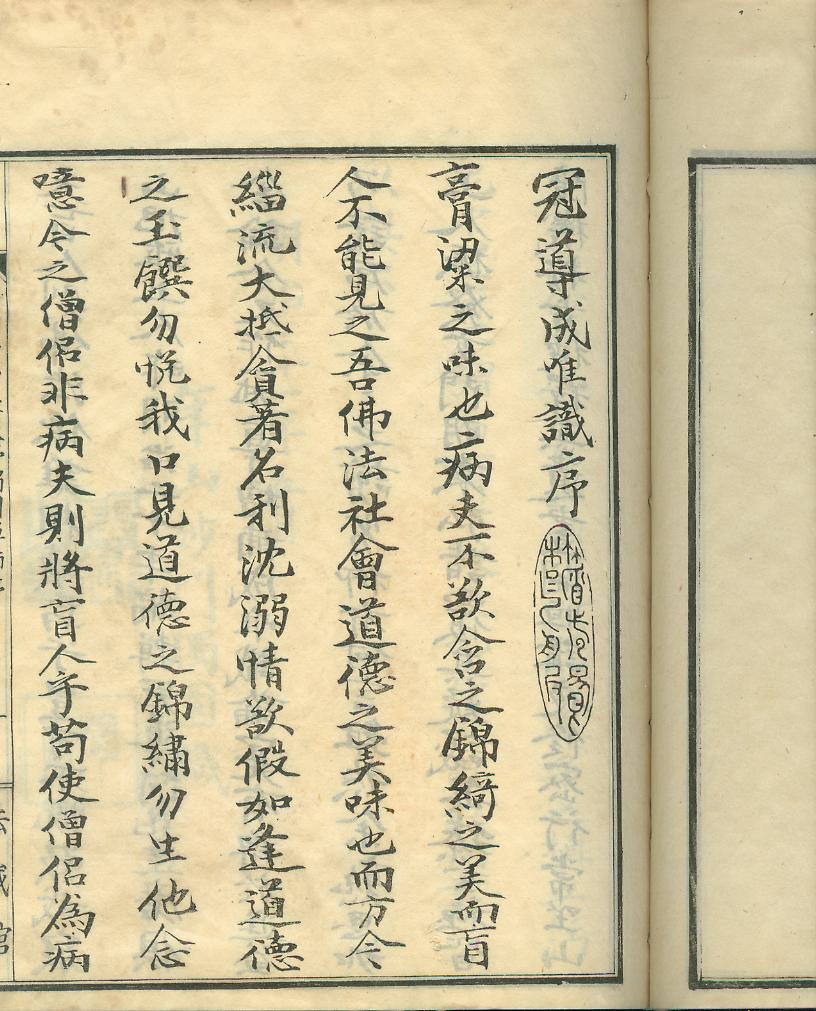 冠導成唯識序
膏粱之味也病夫不欲含之錦綺之美而盲
人不能見之吾佛法社會道德之美味也而方今
緇流大抵貪著名利沈溺情欲假如逢道德
之玉饌勿悅我口見道德之錦繡勿生他念
噫今之僧侶非病夫則將盲人乎苟使僧侶為病
法藏館